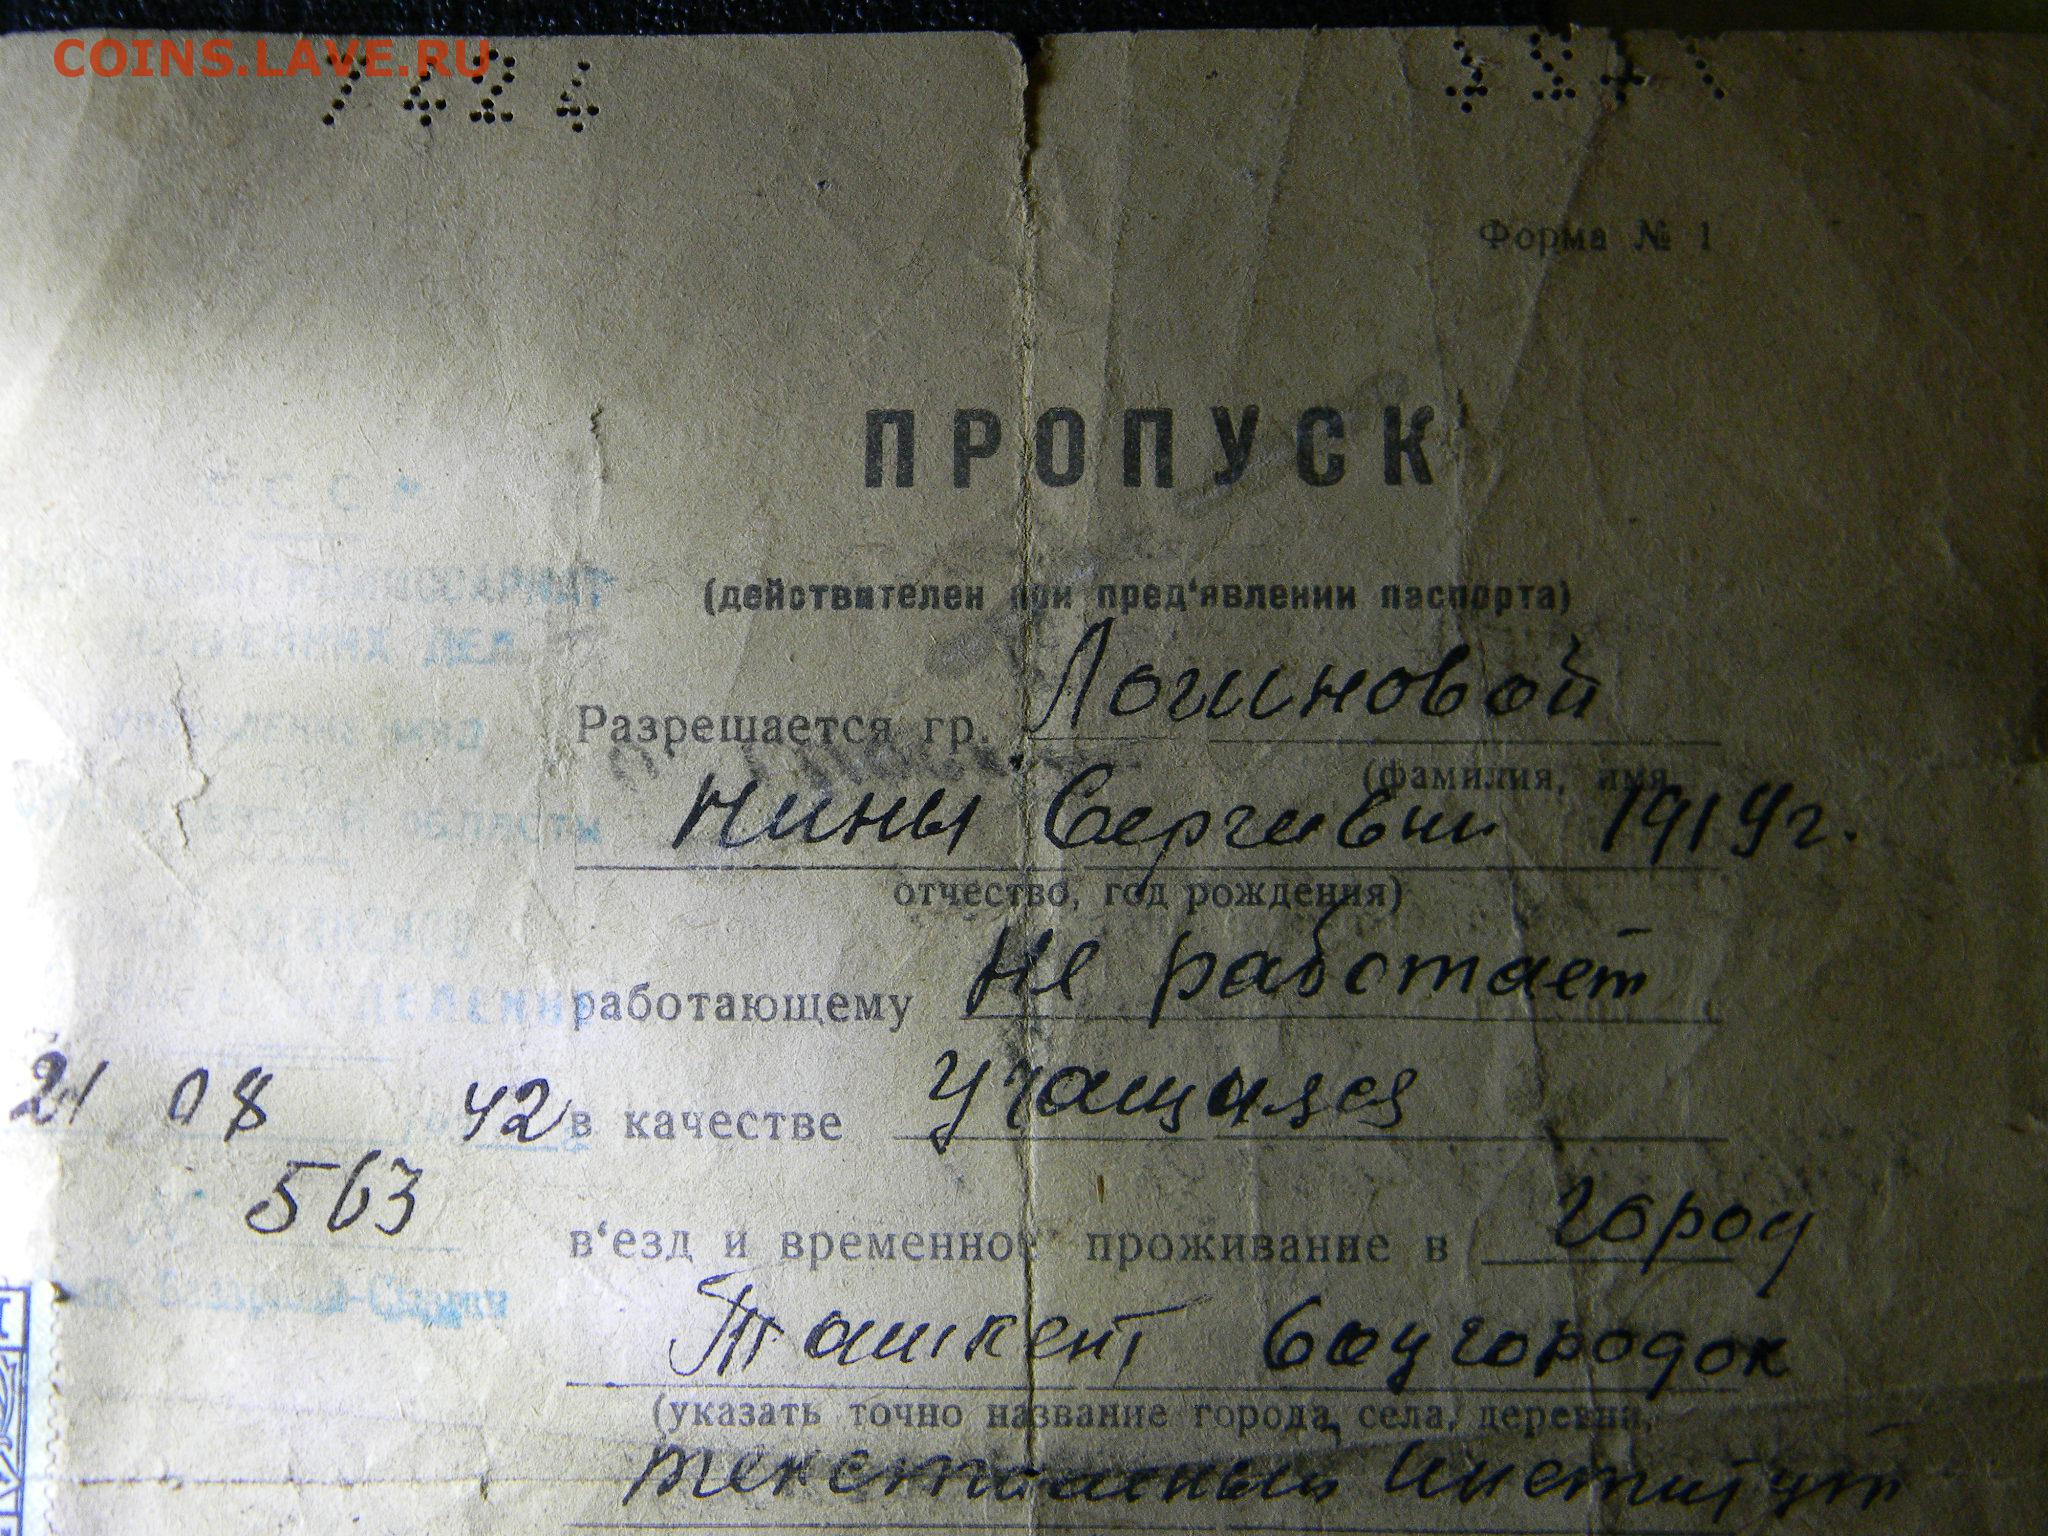 COINS.LAVE.RU
7424
Форма № 1
ПРОПУСК
(действителен при пред‘явлении паспорта)
Разрешается гр. Логиновой
(фамилия, имя,
Нины Сергеевны 1919г.
отчество, год рождения)
работающему Не работает
в качестве Учащаяся
в‘езд и временное проживание в город
Ташкент Соцгородок
(указать точно название города, села, деревни,
текстильный Институт
СССР
КОМИССАРИАТ
ВНУТРЕННИХ ДЕЛ
УПРАВЛЕНИЕ НКВД
ПО
ОБЛАСТИ
21 08 42
№ 563